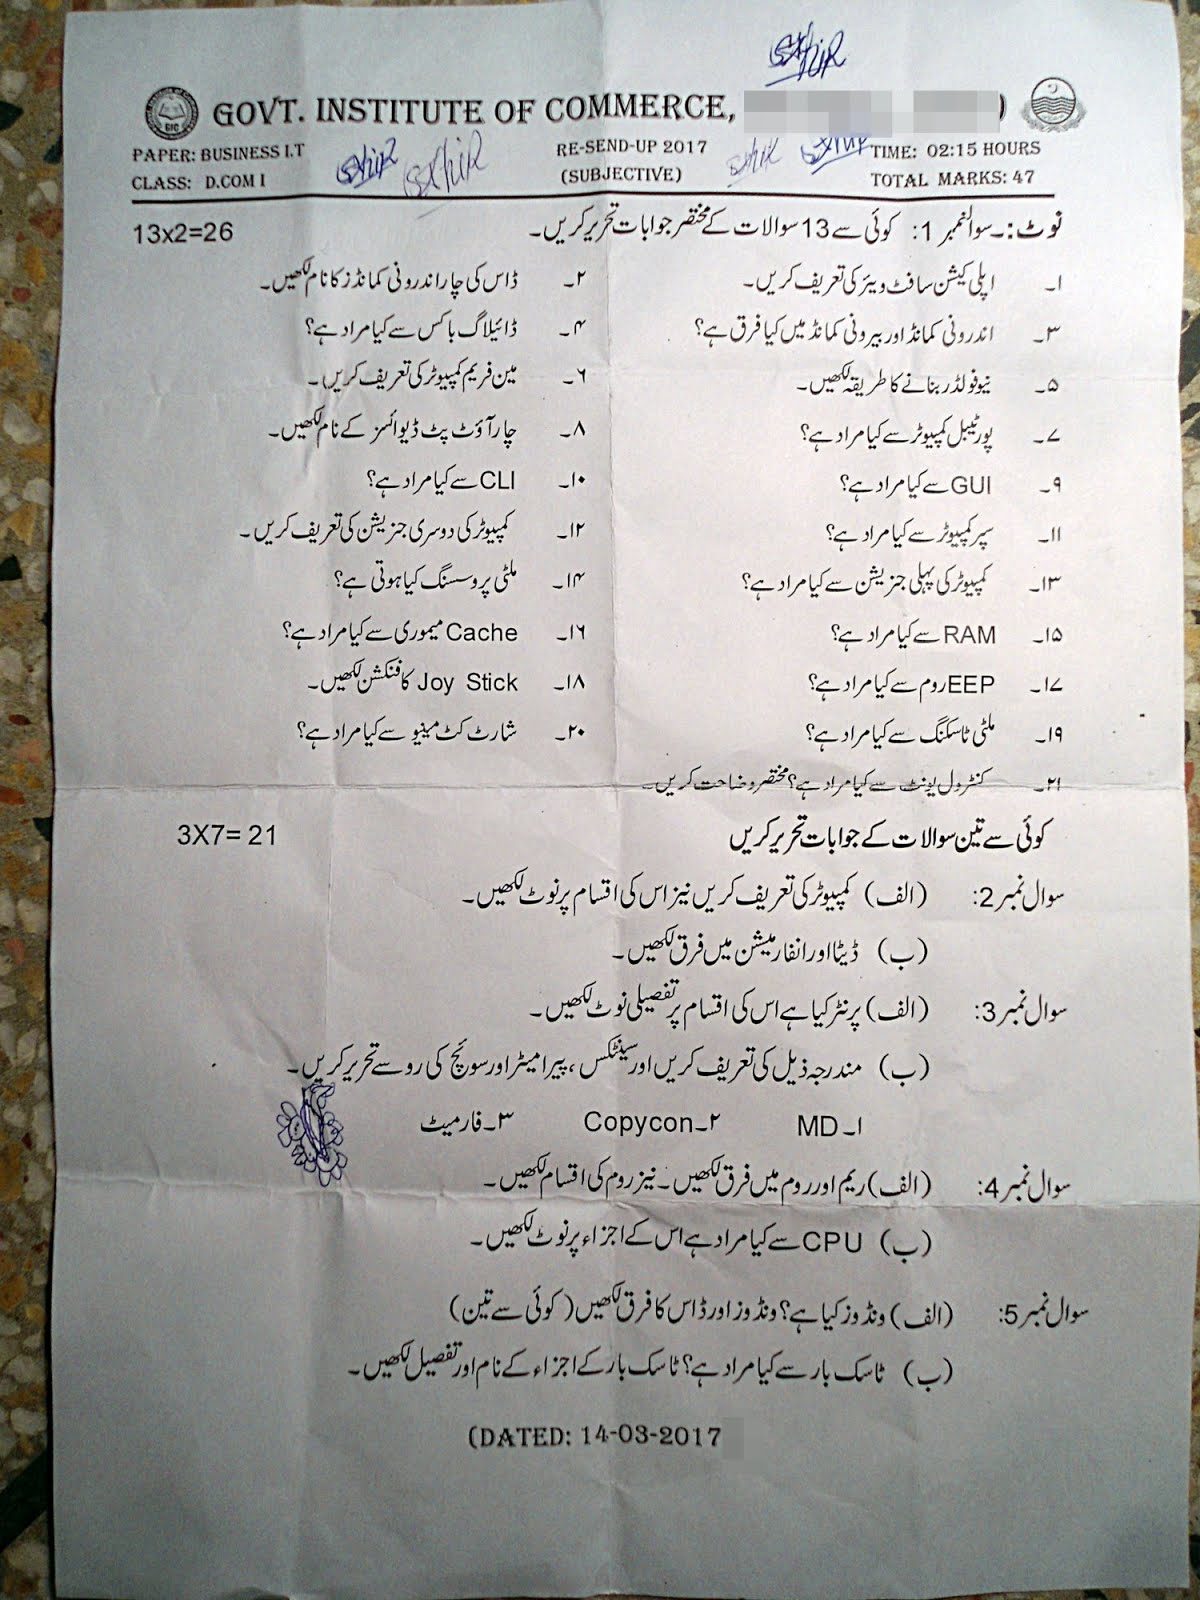 GOVT. INSTITUTE OF COMMERCE,
PAPER: BUSINESS I.T
RE-SEND-UP 2017
TIME: 02:15 HOURS
CLASS: D.COM I
(SUBJECTIVE)
TOTAL MARKS: 47
نوٹ:۔ سوال نمبر 1: کوئی سے 13 سوالات کے مختصر جوابات تحریر کریں۔ 13x2=26
۱۔ اپلی کیشن سافٹ ویئر کی تعریف کریں۔ ۲۔ ڈاس کی چار اندرونی کمانڈز کا نام لکھیں۔
۳۔ اندرونی کمانڈ اور بیرونی کمانڈ میں کیا فرق ہے؟ ۴۔ ڈائیلاگ باکس سے کیا مراد ہے؟
۵۔ نیو فولڈر بنانے کا طریقہ لکھیں۔ ۶۔ مین فریم کمپیوٹر کی تعریف کریں۔
۷۔ پورٹیبل کمپیوٹر سے کیا مراد ہے؟ ۸۔ چار آؤٹ پٹ ڈیوائسز کے نام لکھیں۔
۹۔ GUI سے کیا مراد ہے؟ ۱۰۔ CLI سے کیا مراد ہے؟
۱۱۔ سپر کمپیوٹر سے کیا مراد ہے؟ ۱۲۔ کمپیوٹر کی دوسری جنریشن کی تعریف کریں۔
۱۳۔ کمپیوٹر کی پہلی جنریشن سے کیا مراد ہے؟ ۱۴۔ ملٹی پروسسنگ کیا ہوتی ہے؟
۱۵۔ RAM سے کیا مراد ہے؟ ۱۶۔ Cache میموری سے کیا مراد ہے؟
۱۷۔ EEP روم سے کیا مراد ہے؟ ۱۸۔ Joy Stick کا فنکشن لکھیں۔
۱۹۔ ملٹی ٹاسکنگ سے کیا مراد ہے؟ ۲۰۔ شارٹ کٹ مینیو سے کیا مراد ہے؟
۲۱۔ کنٹرول یونٹ سے کیا مراد ہے؟ مختصر وضاحت کریں۔
کوئی سے تین سوالات کے جوابات تحریر کریں 3X7= 21
سوال نمبر 2: (الف) کمپیوٹر کی تعریف کریں نیز اس کی اقسام پر نوٹ لکھیں۔
(ب) ڈیٹا اور انفارمیشن میں فرق لکھیں۔
سوال نمبر 3: (الف) پرنٹر کیا ہے اس کی اقسام پر تفصیلی نوٹ لکھیں۔
(ب) مندرجہ ذیل کی تعریف کریں اور سینٹکس، پیرامیٹر اور سوئچ کی رو سے تحریر کریں۔
۱۔ MD ۲۔ Copycon ۳۔ فارمیٹ
سوال نمبر 4: (الف) ریم اور روم میں فرق لکھیں۔ نیز روم کی اقسام لکھیں۔
(ب) CPU سے کیا مراد ہے اس کے اجزاء پر نوٹ لکھیں۔
سوال نمبر 5: (الف) ونڈوز کیا ہے؟ ونڈوز اور ڈاس کا فرق لکھیں (کوئی سے تین)
(ب) ٹاسک بار سے کیا مراد ہے؟ ٹاسک بار کے اجزاء کے نام اور تفصیل لکھیں۔
(DATED: 14-03-2017